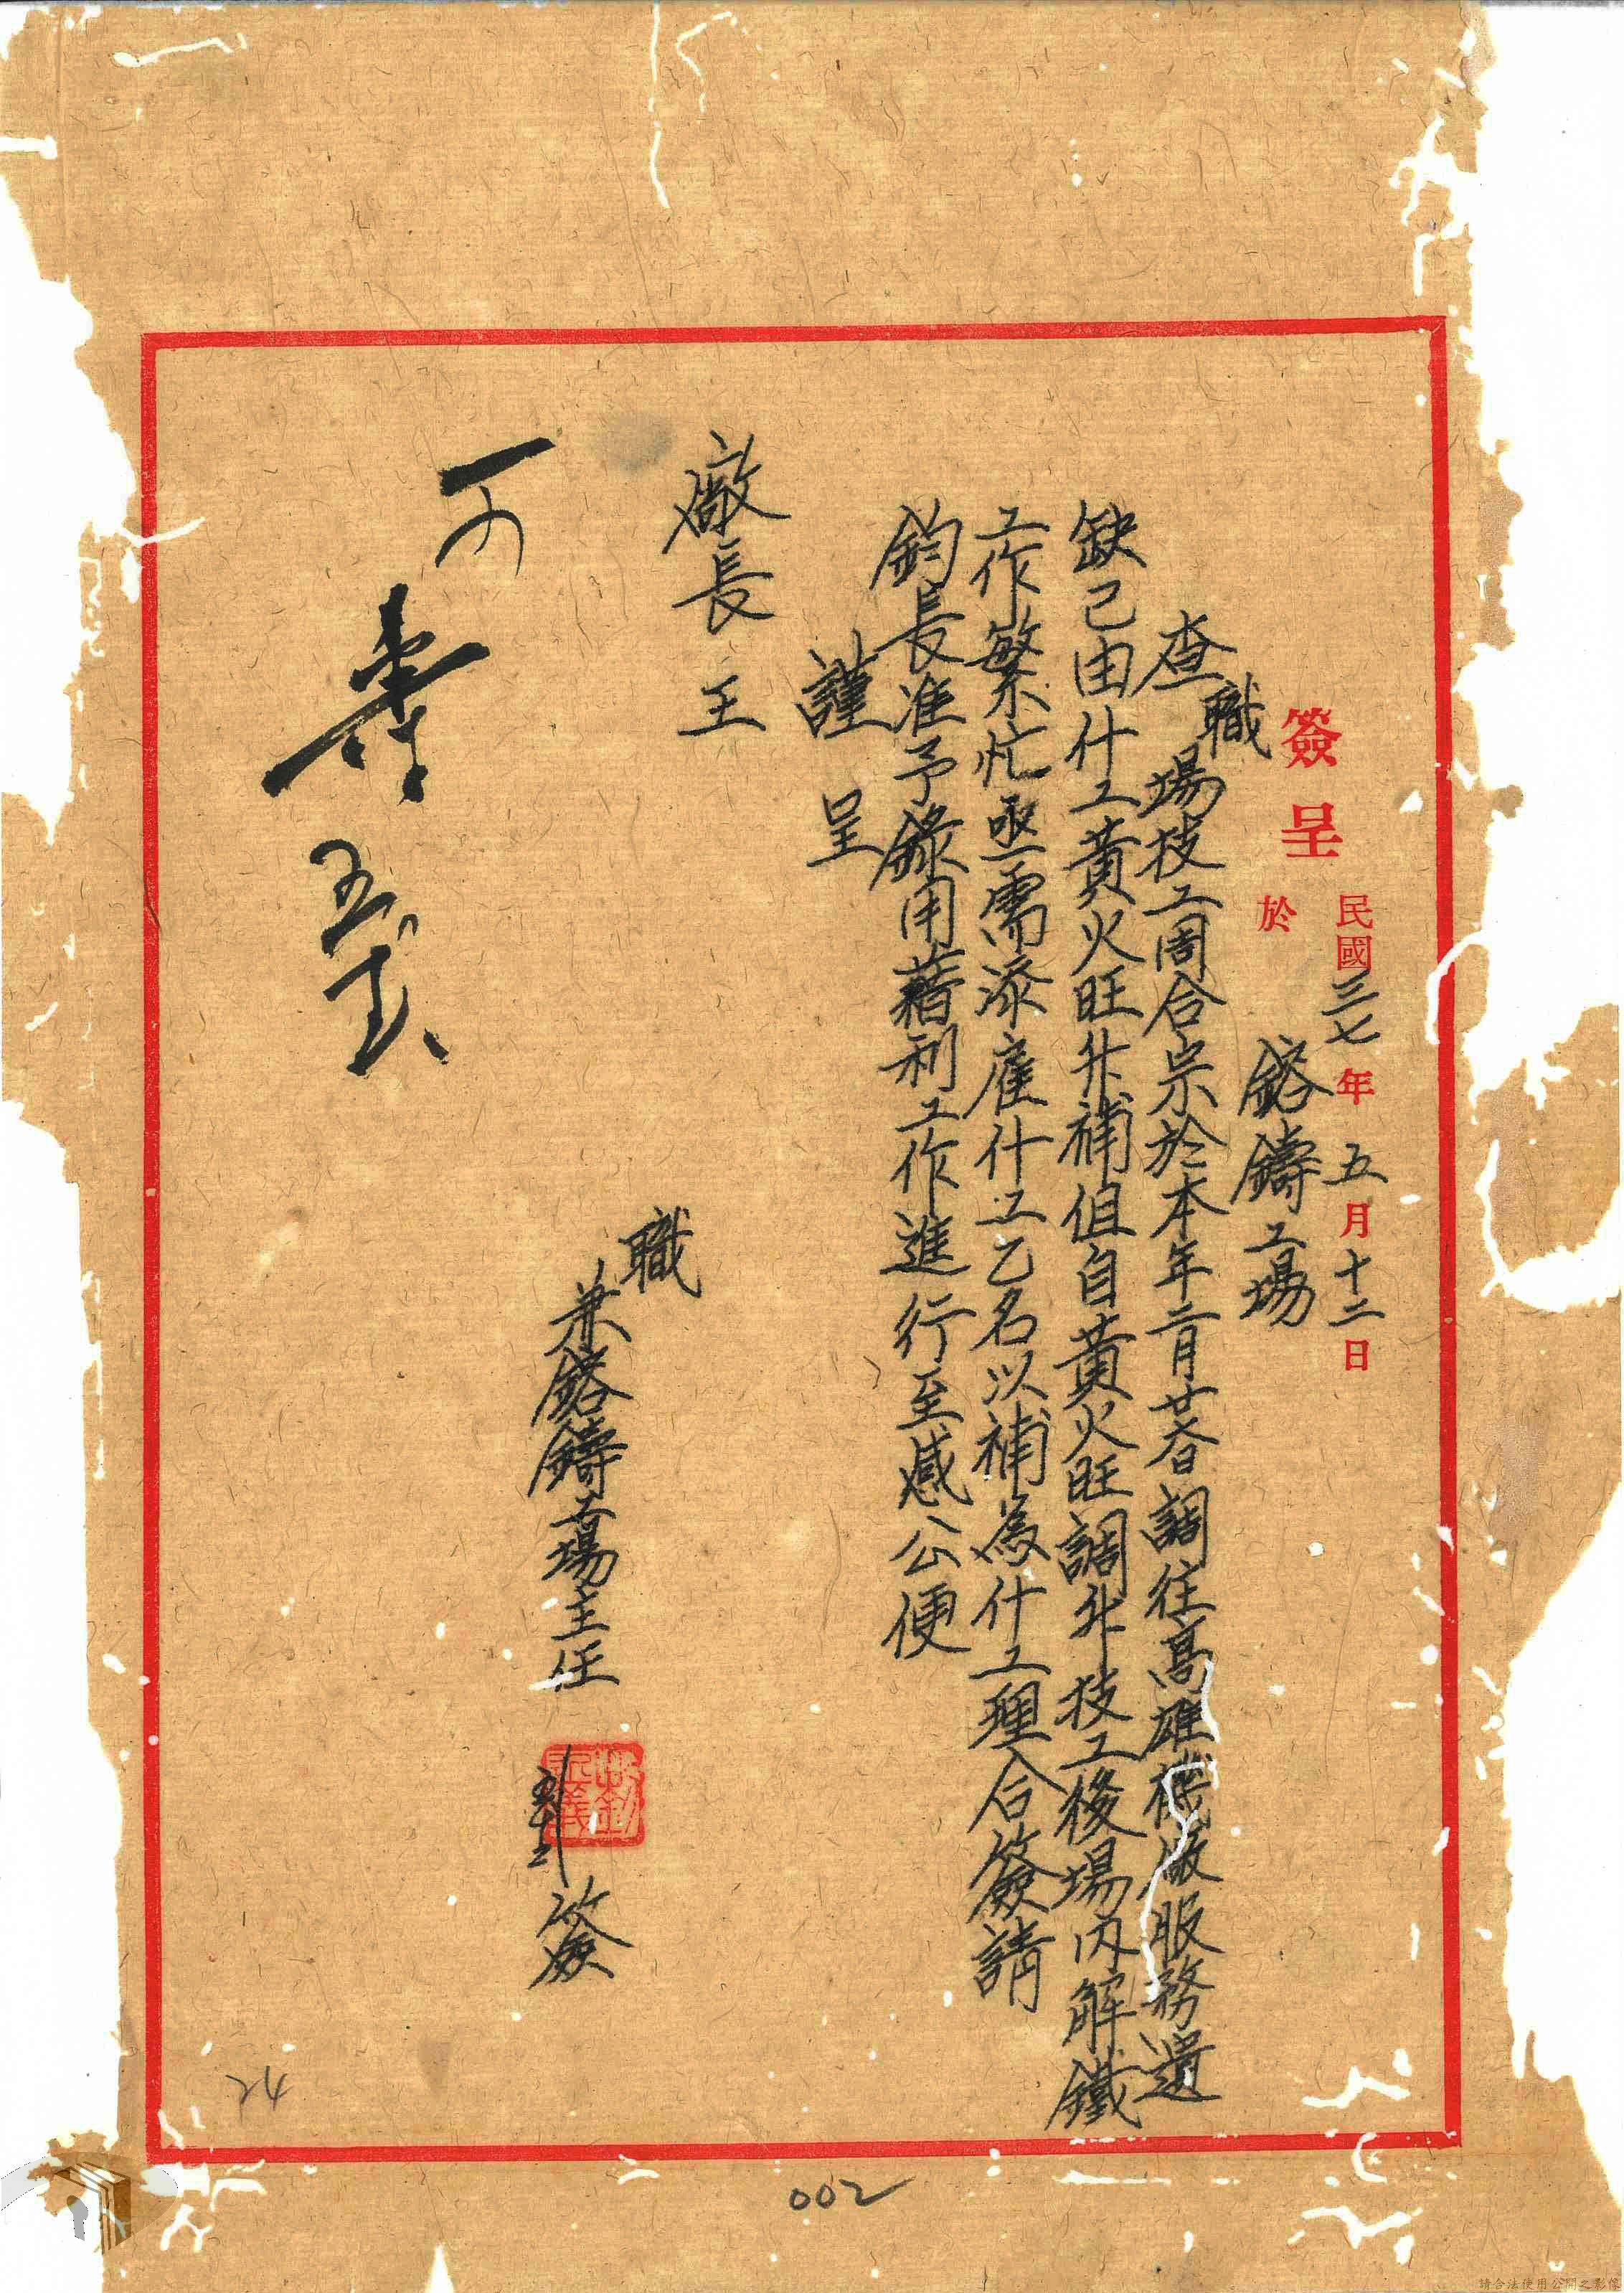 簽呈
民國三七年五月十二日
於 鎔鑄工場
查職場技工周合宗於本年二月廿八日調往高雄機廠服務遺
缺己由什工黃火旺升補但自黃火旺調升技工後場內解鐵
工作繁忙亟需添雇什工乙名以補為什工理合簽請
鈞長准予錄用藉利工作進行至感公便
謹呈
廠長 王
職
兼鎔鑄工場主任 簽
可
五
24
002
請合法使用公開之影像